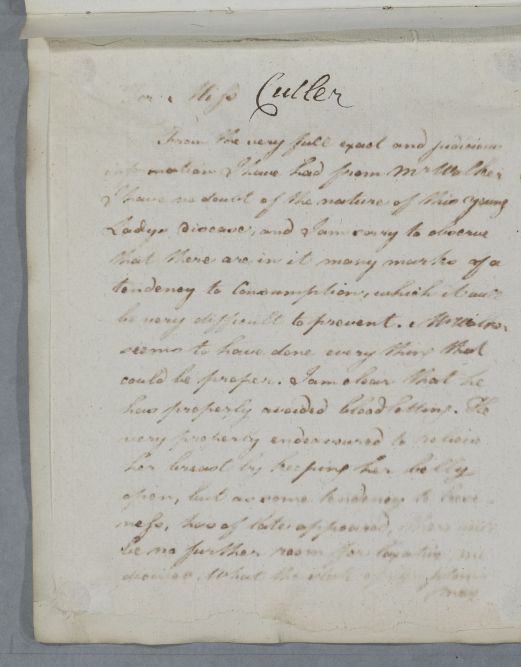 For Miss Culler
From the very full exact and judicious
information I have had from Mr Walker
I have no doubt of the nature of this young
Ladys Disease, and I am sorry to observe
that there are in it many marks of a
tendency to Consumption, which it will
be very difficult to prevent. Mr Walker
seems to have done every thing that
could be proper. I am clear that he
has properly avoided bloodletting. He
very properly endeavoured to relieve
her breast by keeping her belly
open, but as some tendency to loose-
ness, has of late appeared, there will
be no further room for laxative me
dicines. What the state of symptoms
may